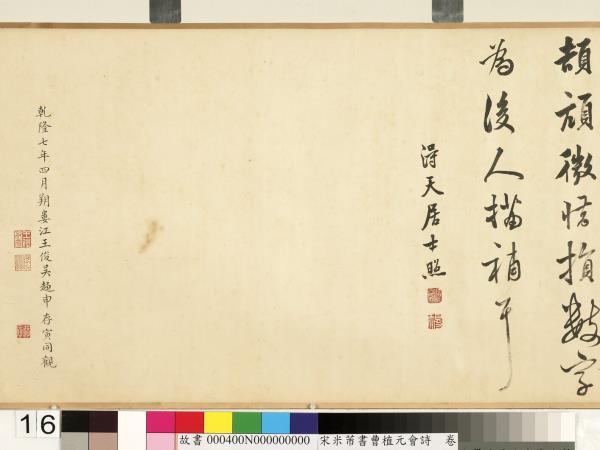 頡頏微惜損數字
為後人描補耳
得天居士照
乾隆七年四月朔婁江王俊吳趨申存寅同觀
16
故書 000400N000000000 宋米芾書曹植元會詩 卷